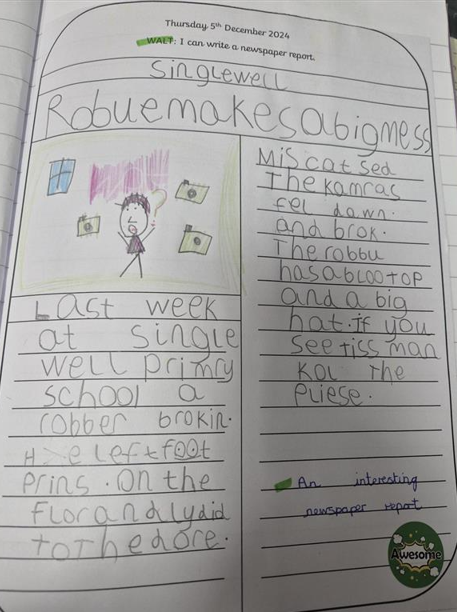 Thursday 5th December 2024
WALT: I can write a newspaper report.
Singlewell
Robuemakesabigmess
Last week
at single
well primry
school a
robber brokin.
H>e leftfoot
Prins. On the
florandlydid
tothedore.
Miscatsed
The kamras
fel down.
and brok.
The robbu
hasablootop
and a big
hat. if you
seetiss man
kol the
pliese.
An interesting
newspaper report
Awesome